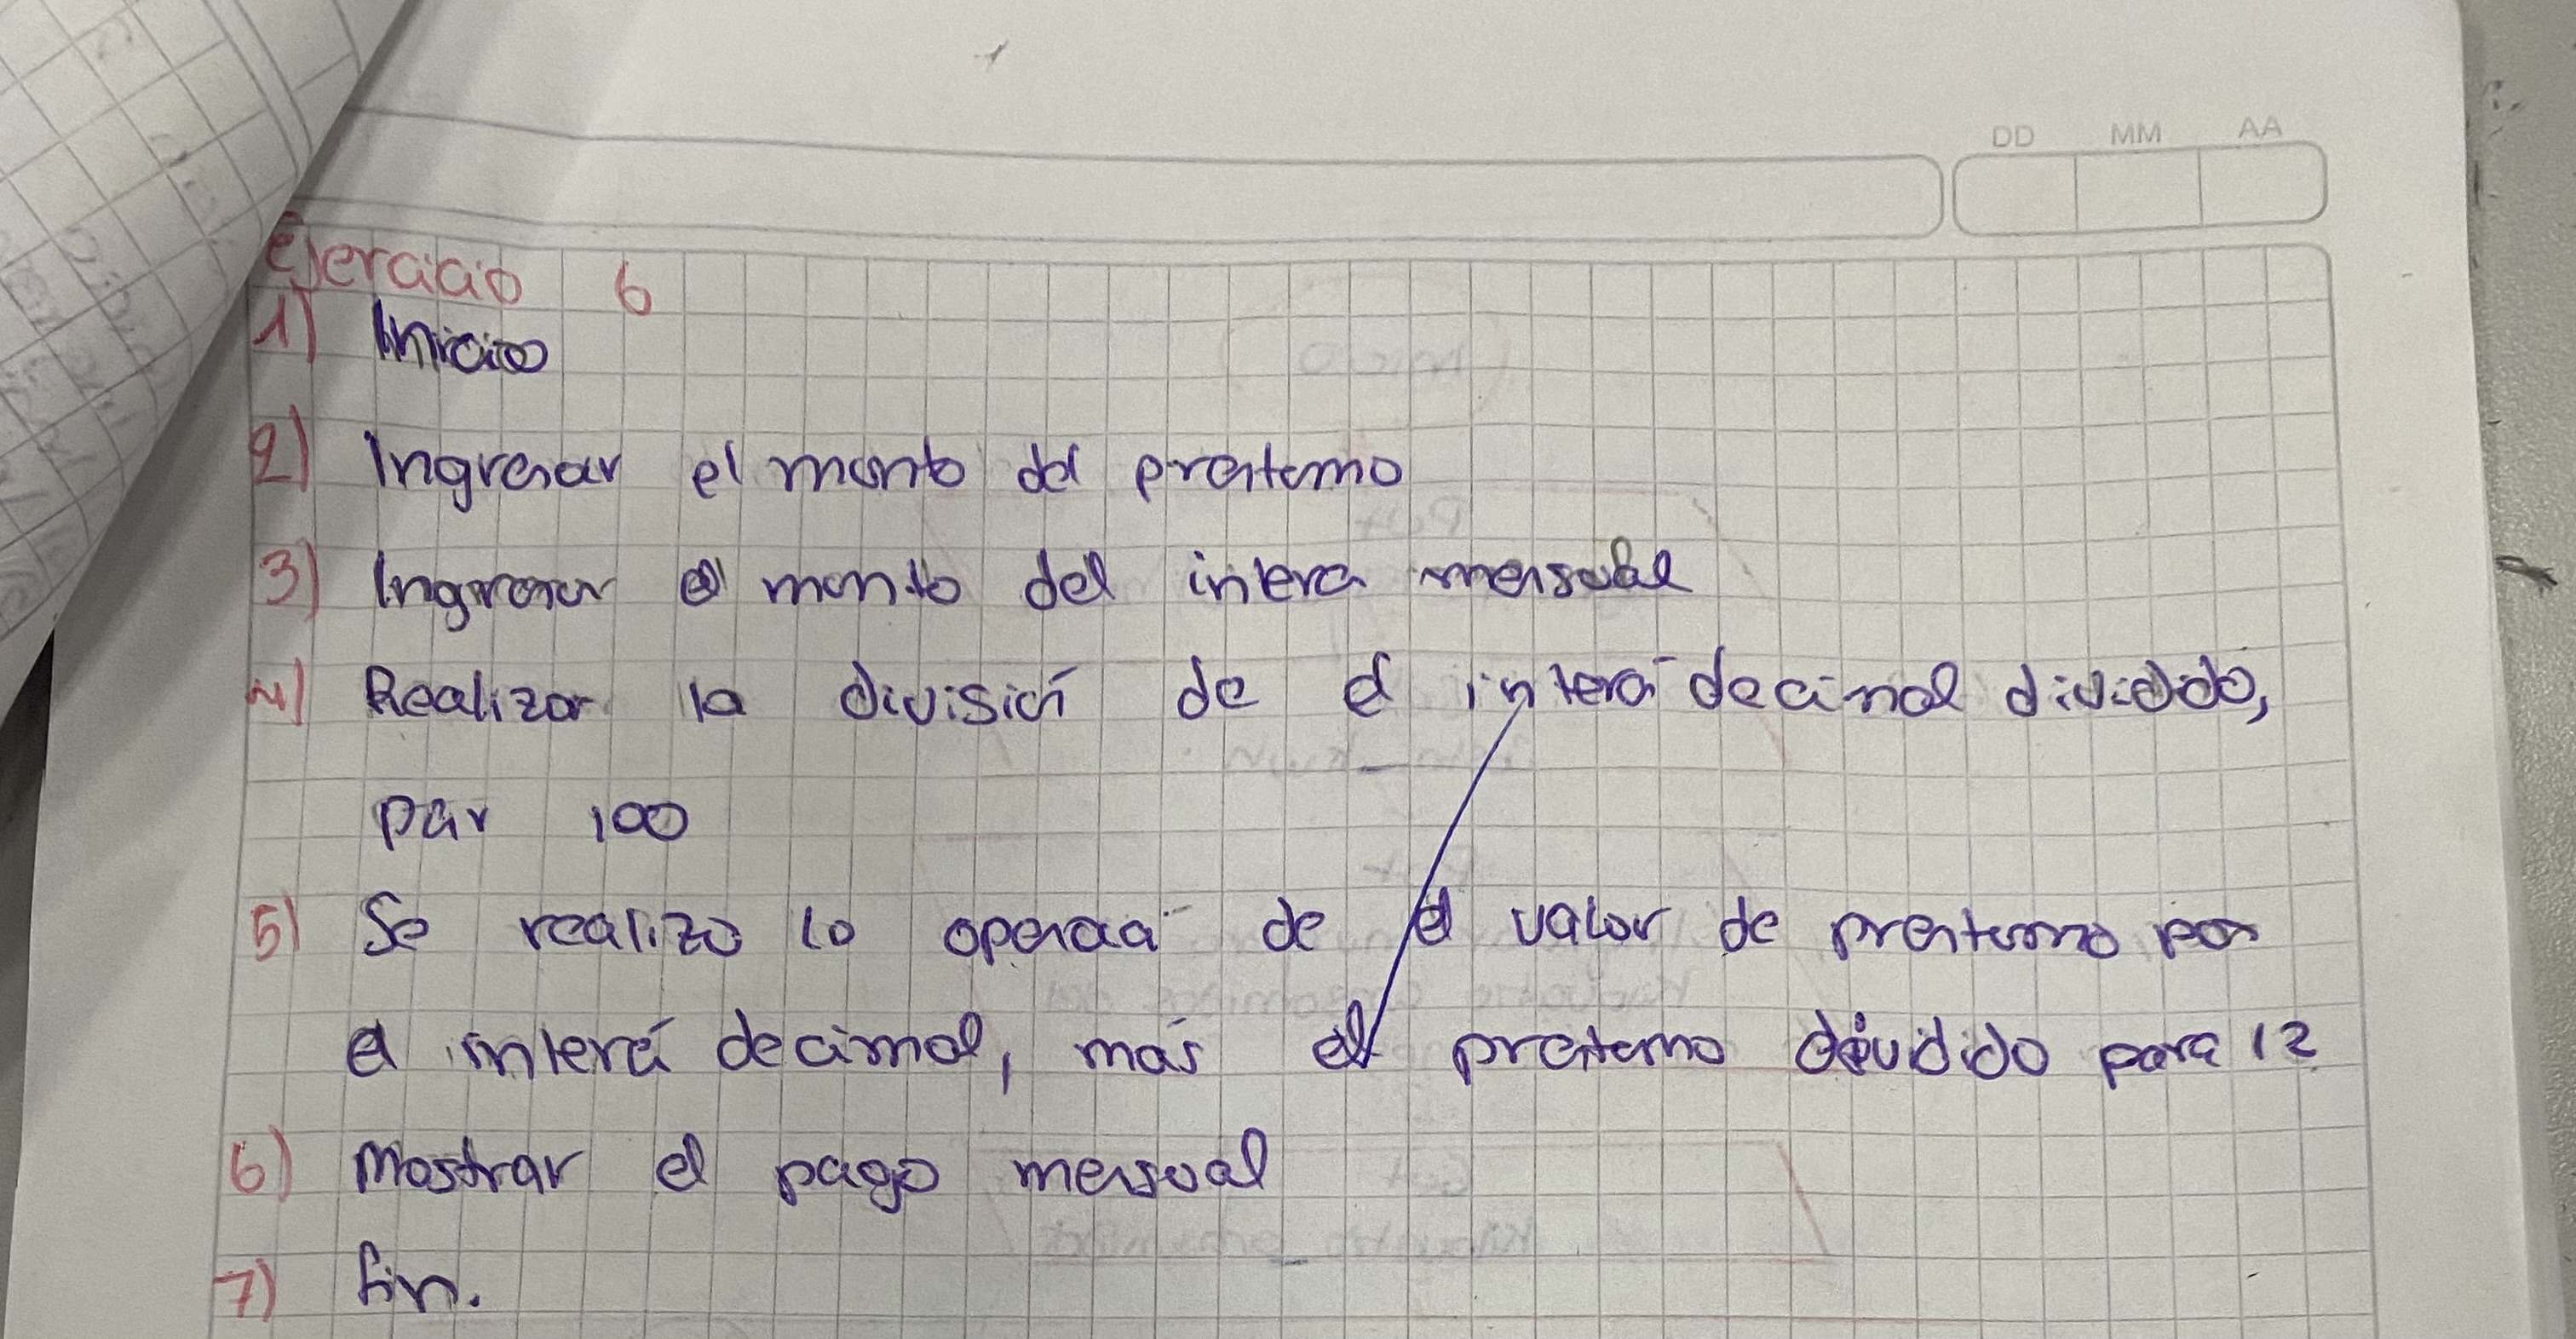 DD MM AA
Ejercicio 6
1) Inicio
2) Ingresar el monto del prestamo
3) Ingresar el monto del interes mensual
4) Realizar la división de el interés decimal dividido,
par 100
5) Se realizo la operación de el valor de prestamo por
el interés decimal, más el prestamo dividido para 12
6) Mostrar el pago mensual
7) fin.